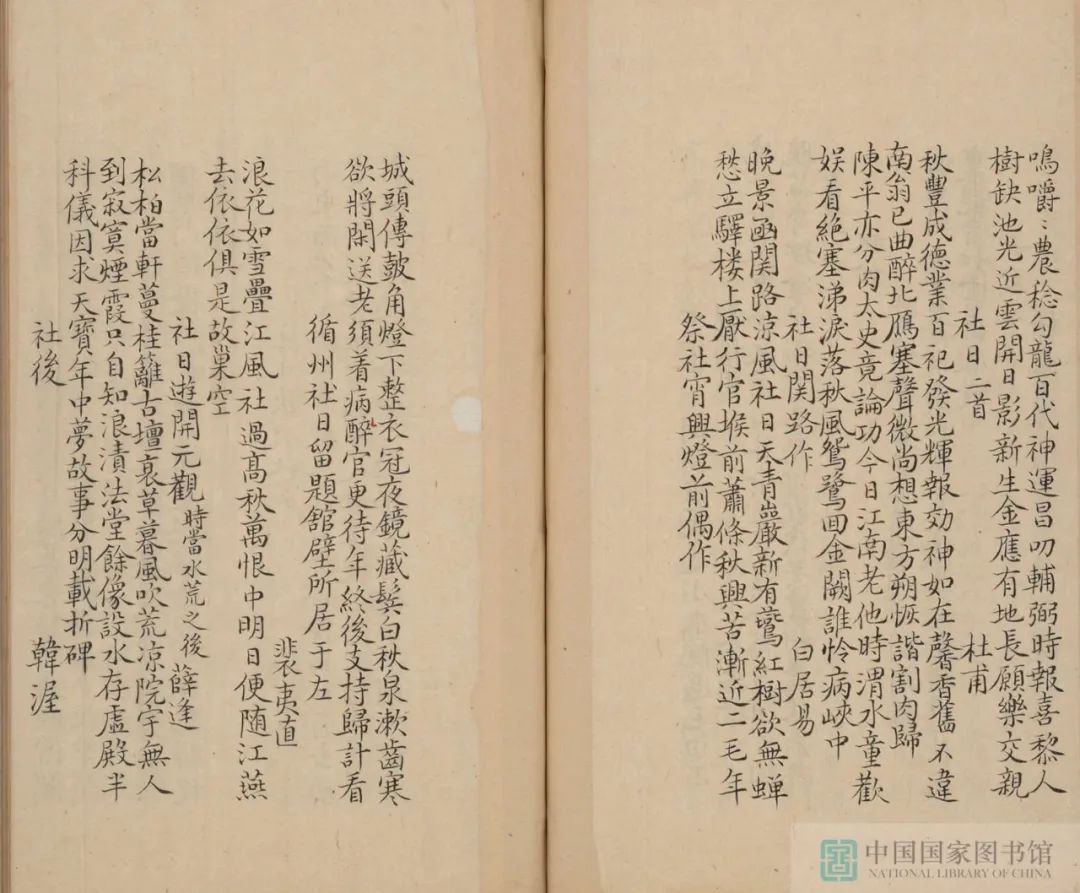 鳴嚼〻農稔勾龍百代神運昌叨輔弼時報喜黎人
樹缺池光近雲開日影新生金應有地長願樂交親
社日二首 杜甫
秋豐成德業百祀發光輝報効神如在馨香舊不違
南翁巴曲醉北鴈塞聲微尚想東方朔恢諧割肉歸
陳平亦分肉太史竟論功今日江南老他時渭水童歡
娛看絕塞涕淚落秋風鴛鷺回金闕誰怜病峽中
社日関路作 白居易
晚景函関路涼風社日天青巖新有鷰紅樹欲無蟬
愁立驛楼上厭行官堠前蕭條秋興苦漸近二毛年
祭社宵興燈前偶作
城頭傳皷角燈下整衣冠夜鏡藏鬓白秋泉漱齒寒
欲將閑送老須着病醉官更待年終後支持歸計看
循州社日留題舘壁所居于左
裴夷直
浪花如雪疊江風社過高秋萬恨中明日便随江燕
去依依俱是故巢空
社日遊開元觀 時當水荒之後 薛逢
松柏當軒蔓桂籬古壇衰草暮風吹荒凉院宇無人
到寂寞煙霞只自知浪漬法堂餘像設水存虛殿半
科儀因求天寶年中夢故事分明載折碑
社後 韓渥
中国国家图书馆
NATIONAL LIBRARY OF CHINA